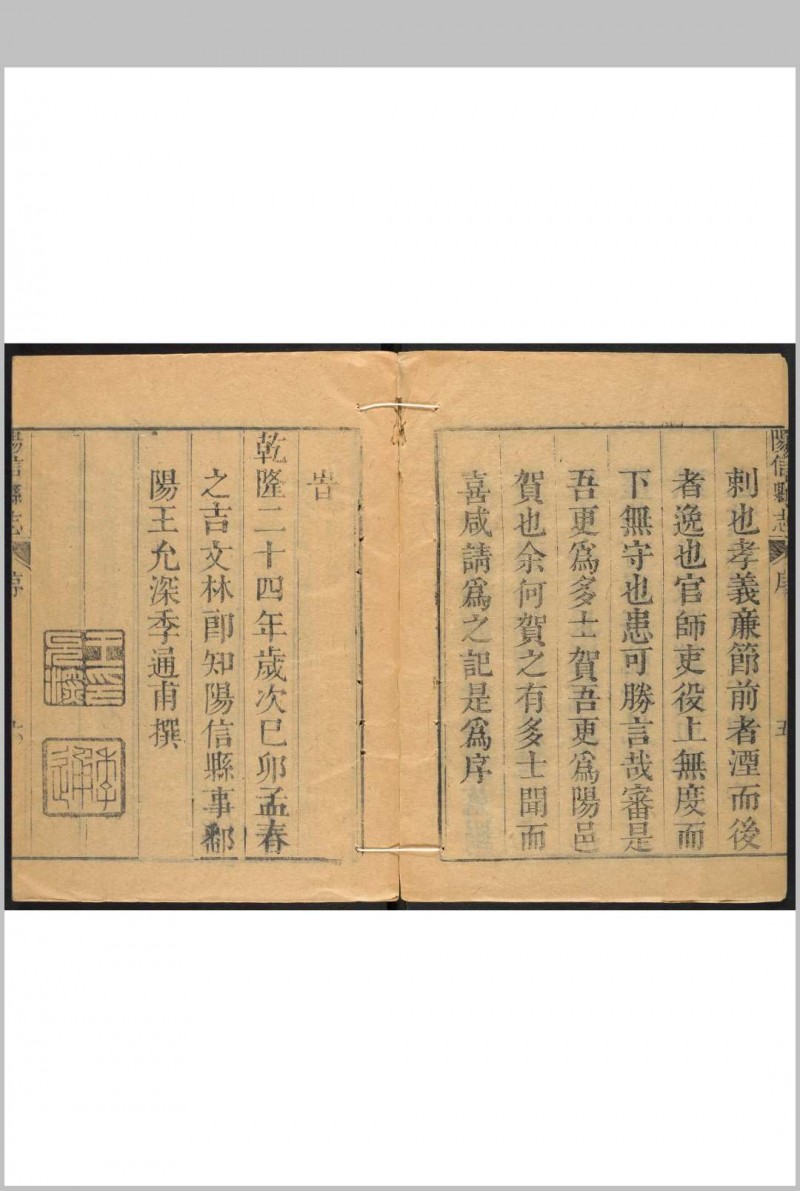 陽信縣志 序 五
刺也孝義亷節前者湮而後
者逸也官師吏役上無度而
下無守也患可勝言哉審是
吾更爲多士賀吾更爲陽邑
賀也余何賀之有多士聞而
喜咸請爲之記是爲序
旹
乾隆二十四年歲次己卯孟春
之吉文林郎知陽信縣事鄱
陽王允深季通甫撰
王允深印
季通
陽信縣志 序 六